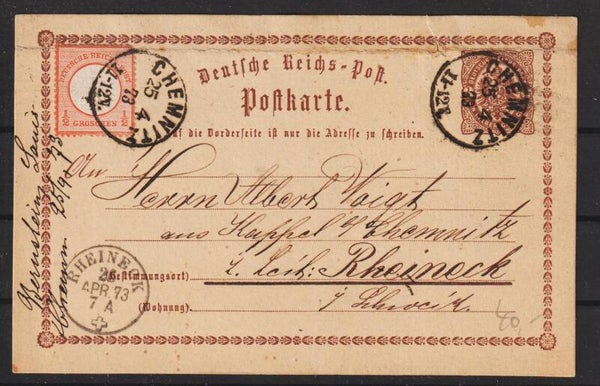 DEUTSCHE REICHS-POST
½ GROSCHEN ½
CHEMNITZ
25 4
73
11-12V.
Deutsche Reichs-Post.
Postkarte.
CHEMNITZ
25 4
73
11-12V.
Auf die Vorderseite ist nur die Adresse zu schreiben.
An Herrn Albert Voigt
aus Kappel b/Chemnitz
z. Zeit: Rheineck
(Bestimmungsort)
(Wohnung)
i/ Schweiz.
RHEINECK
26
APR. 73
7 A
40,-
Bernstein
25/4 73